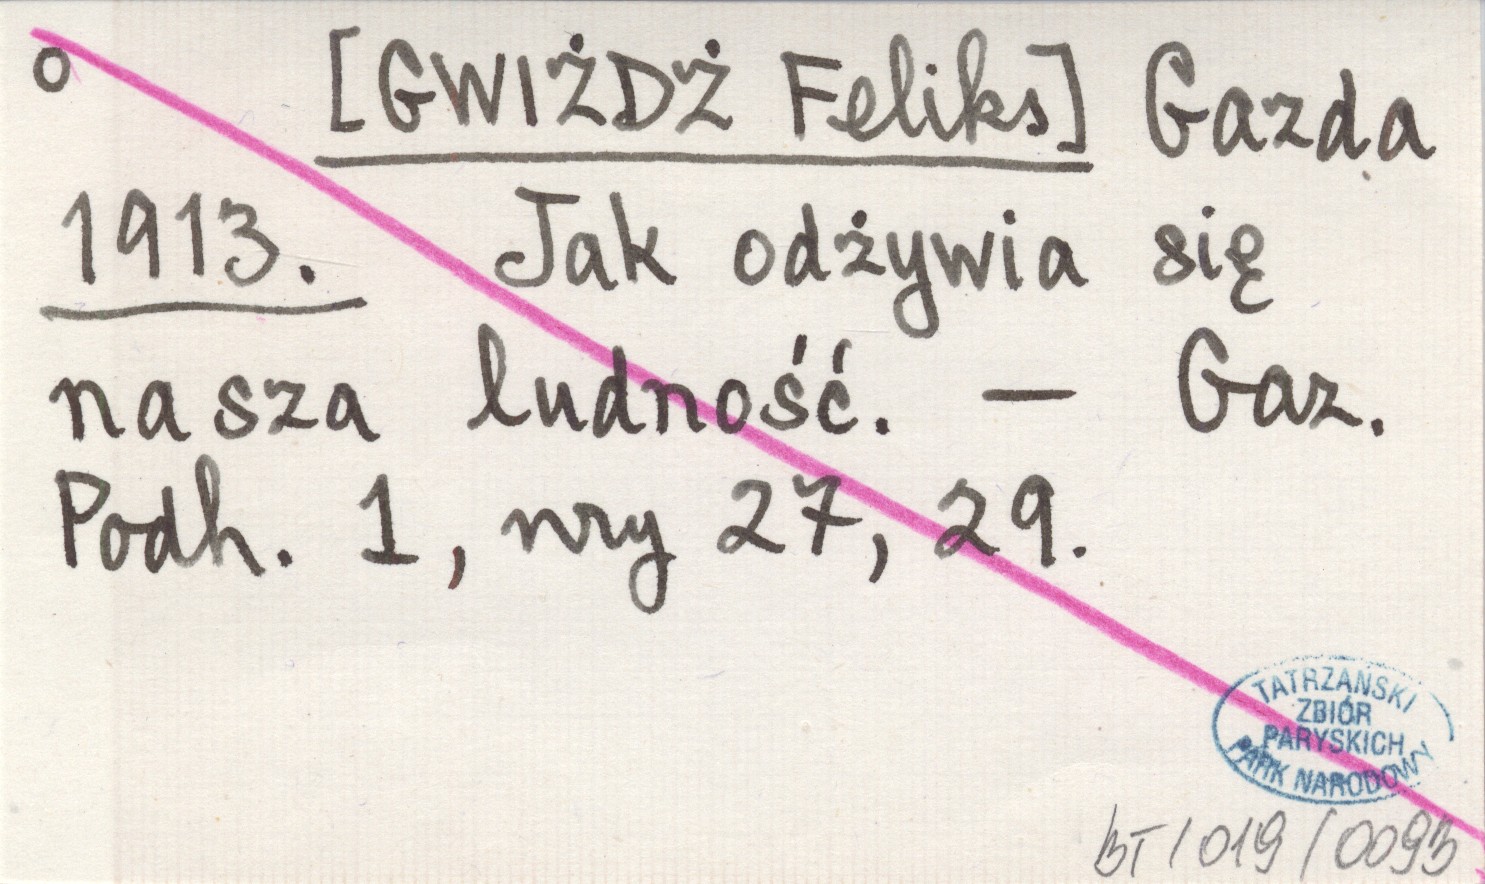 o [GWIŻDŻ Feliks] Gazda
1913. Jak odżywia się
nasza ludność. — Gaz.
Podh. 1, nry 27, 29.
TATRZAŃSKI
ZBIÓR
PARYSKICH
PARK NARODOWY
BT / 019 / 0093